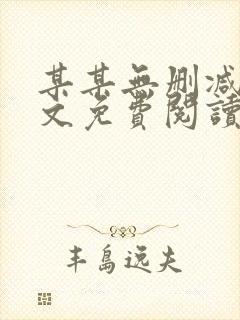 某某無刪減
文免費閱讀
丰島远夫